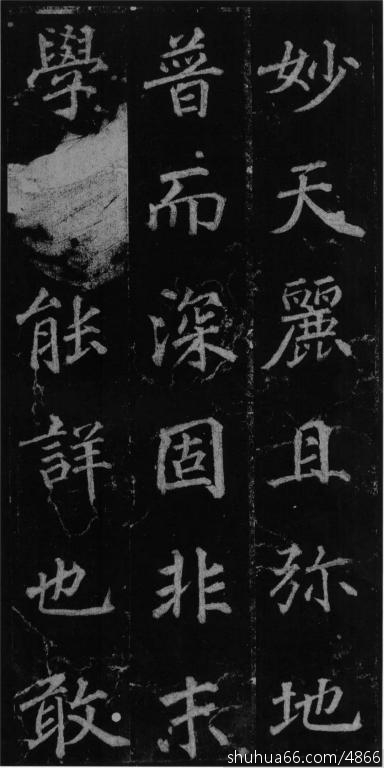 妙天麗且弥地
普而深固非末
學能詳也敢
shuhua66.com/4866